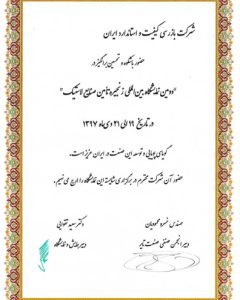 شرکت بازرسی کیفیت و استاندارد ایران
حضور باشکوه و تحسین برانگیز در
"دومین نمایشگاه بین المللی زنجیره تامین صنایع لاستیک"
در تاریخ ۱۹ الی ۲۱ دی ماه ۱۳۹۷
گویای پویایی و توسعه این صنعت در ایران عزیز است.
حضور آن شرکت محترم در برگزاری شایسته این نمایشگاه را ارج می نهیم.
مهندس
دبیر انجمن صنفی صنعت تایر
دکتر سعید تقوایی
دبیر همایش و نمایشگاه